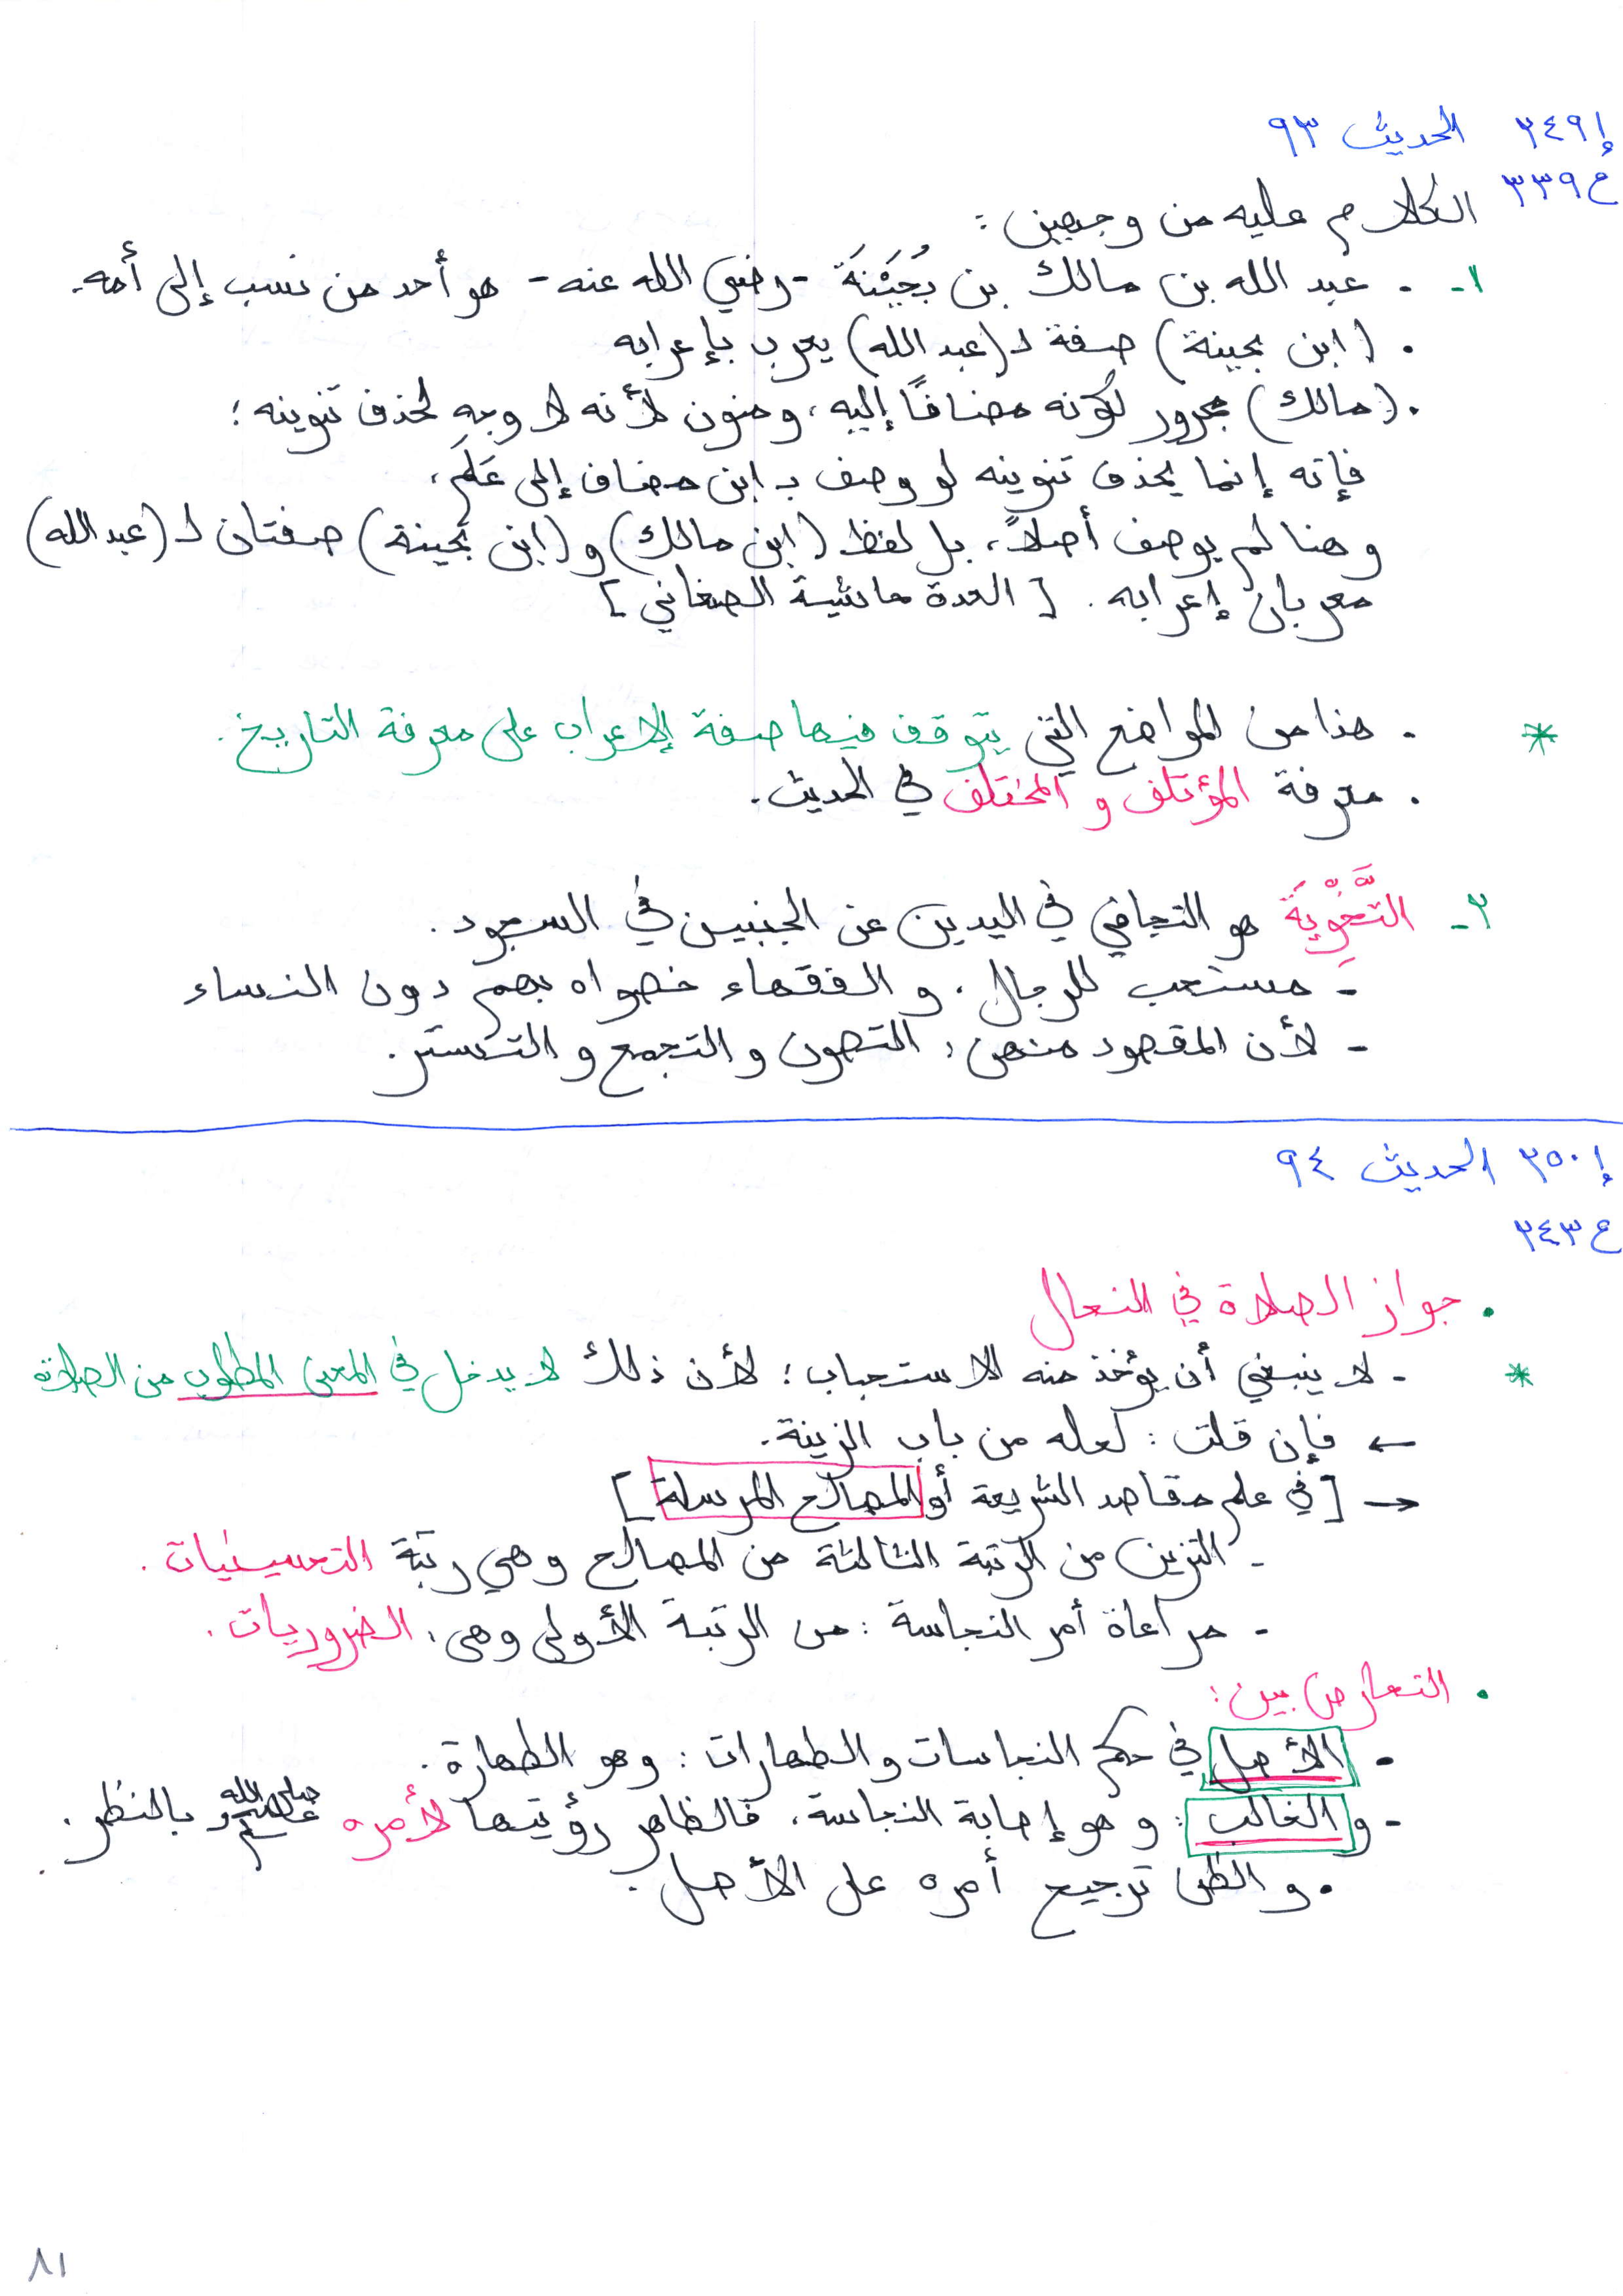 إ ٢٤٩ الحديث ٩٣
ع ٣٣٩
الكلام عليه من وجهين :
١- . عبد الله بن مالك بن بُحَيْنَةَ - رضي الله عنه - هو أحد من نسب إلى أمه.
. (ابن بحينة) صفة لـ (عبد الله) يعرب بإعرابه
. (مالك) مجرور لكونه مضافًا إليه، ومنون لأنه لا وجه لحذف تنوينه ؛
فإنه إنما يحذف تنوينه لو وصف بـ ابن مضاف إلى عَلَم،
وهنا لم يوصف أصلاً، بل لفظ (ابن مالك) و (ابن بحينة) صفتان لـ (عبد الله)
معربان إعرابه . [ العدة حاشية الصنعاني ]
* . هذا من المواضع التي يتوقف فيها صفة الإعراب على معرفة التاريخ .
. معرفة المؤتلف و المختلف في الحديث .
٢- التَّخْوِيَة هو التجافي في اليدين عن الجنبين في السجود .
- مستحب للرجال ، و الفقهاء خصواه بهم دون النساء
- لأن المقصود منهن : التصون و التجمع و التستر .
إ ٢٥٠ الحديث ٩٤
ع ٢٤٣
. جواز الصلاة في النعال
* - لا ينبغي أن يؤخذ منه الاستحباب ؛ لأن ذلك لا يدخل في المعنى المطلوب من الصلاة
← فإن قلت : لعله من باب الزينة .
→ [ في علم مقاصد الشريعة أو المصالح المرسلة ]
- التزين من الرتبة الثالثة من المصالح وهي رتبة التحسينيات .
- مراعاة أمر النجاسة : من الرتبة الأولى وهي ، الضروريات .
. التعارض بين :
- الأصل في حكم النجاسات والطهارات : وهو الطهارة .
- و الغالب : و هو إصابة النجاسة ، فالظاهر رؤيتها لأمره صلى الله عليه وسلم بالنظر .
. و الظن ترجيح أمره على الأصل .
٨١